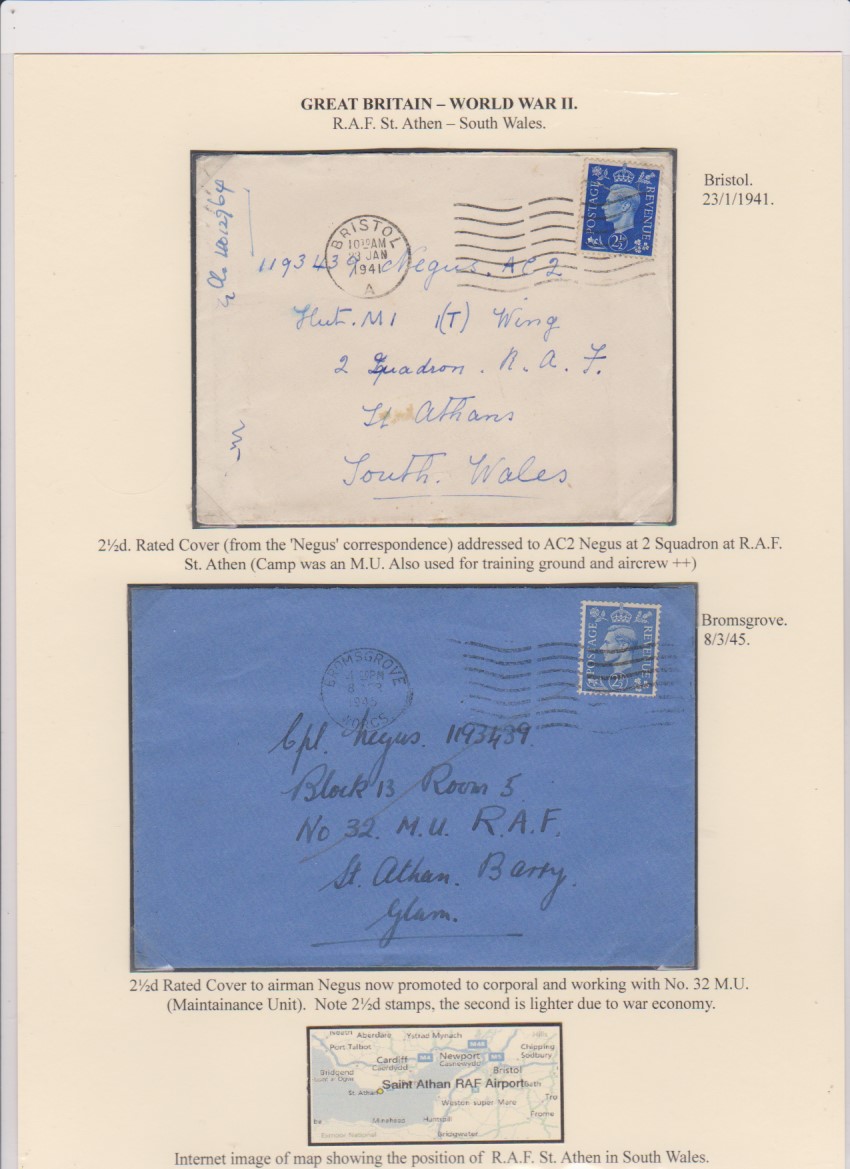 GREAT BRITAIN – WORLD WAR II.
R.A.F. St. Athen – South Wales.
Bristol.
23/1/1941.
BRISTOL
AM
JAN
1941
A
POSTAGE
REVENUE
2½D
1193439 Negus. AC2
Hut. M1 1(T) Wing
2 Squadron. R. A. F.
St Athans
South. Wales
2½d. Rated Cover (from the 'Negus' correspondence) addressed to AC2 Negus at 2 Squadron at R.A.F.
St. Athen (Camp was an M.U. Also used for training ground and aircrew ++)
Bromsgrove.
8/3/45.
BROMSGROVE
PM
8
WORCS
POSTAGE
REVENUE
2½D
Cpl. Negus. 1193439.
Block 13 Room 5.
No 32. M.U. R.A.F.
St. Athan. Barry.
Glam.
2½d Rated Cover to airman Negus now promoted to corporal and working with No. 32 M.U.
(Maintainance Unit). Note 2½d stamps, the second is lighter due to war economy.
Neath Aberdare Ystrad Mynach
Port Talbot
M48
Chipping
Sodbury
Cardiff M4 Newport M5
Caerdydd Casnewydd
Bridgend
Bristol
Saint Athan RAF Airport
Bath
St. Athan
Weston super Mare
Frome
Minehead
Bridgwater
Exmoor National
Internet image of map showing the position of R.A.F. St. Athen in South Wales.